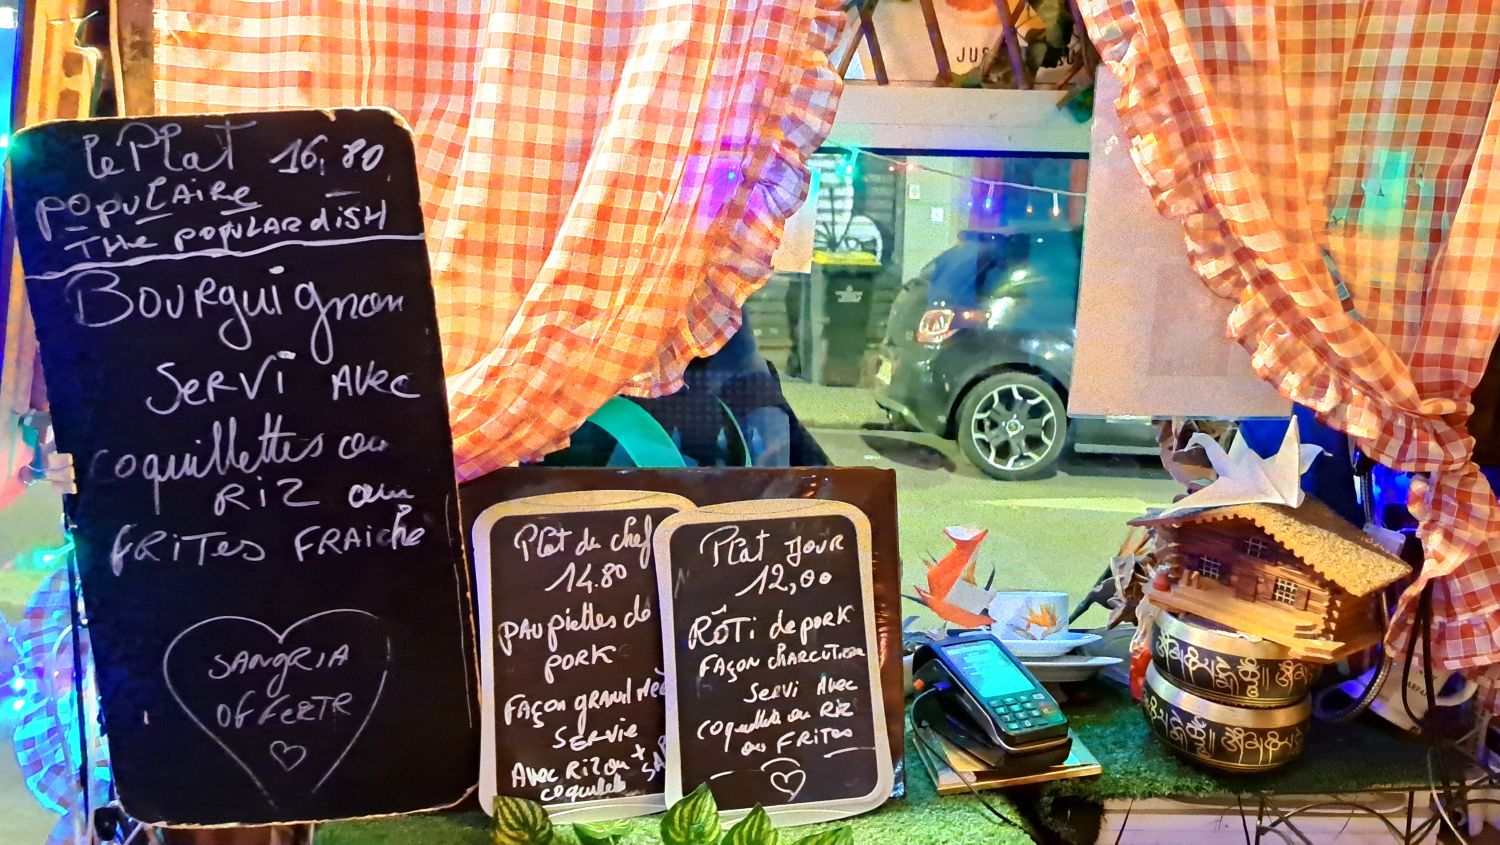 le Plat 16,80
POPULAIRE
THE POPULAR DISH
BOURguignon
SERVi AVEC
coquillettes ou
RIZ ou
FRITES FRAICHE
SANGRIA
OFFERTE
Plat du chef
14.80
PAUPiettes de
PORK
FAÇON grand mèr
SERVIE
AVEC RIZ ou +
coquillett
Plat JOUR
12,00
RÔTi de PORK
FAÇON CHARCUTIER
SERVi AVEC
coquillettes ou RIZ
ou FRITES
JUS